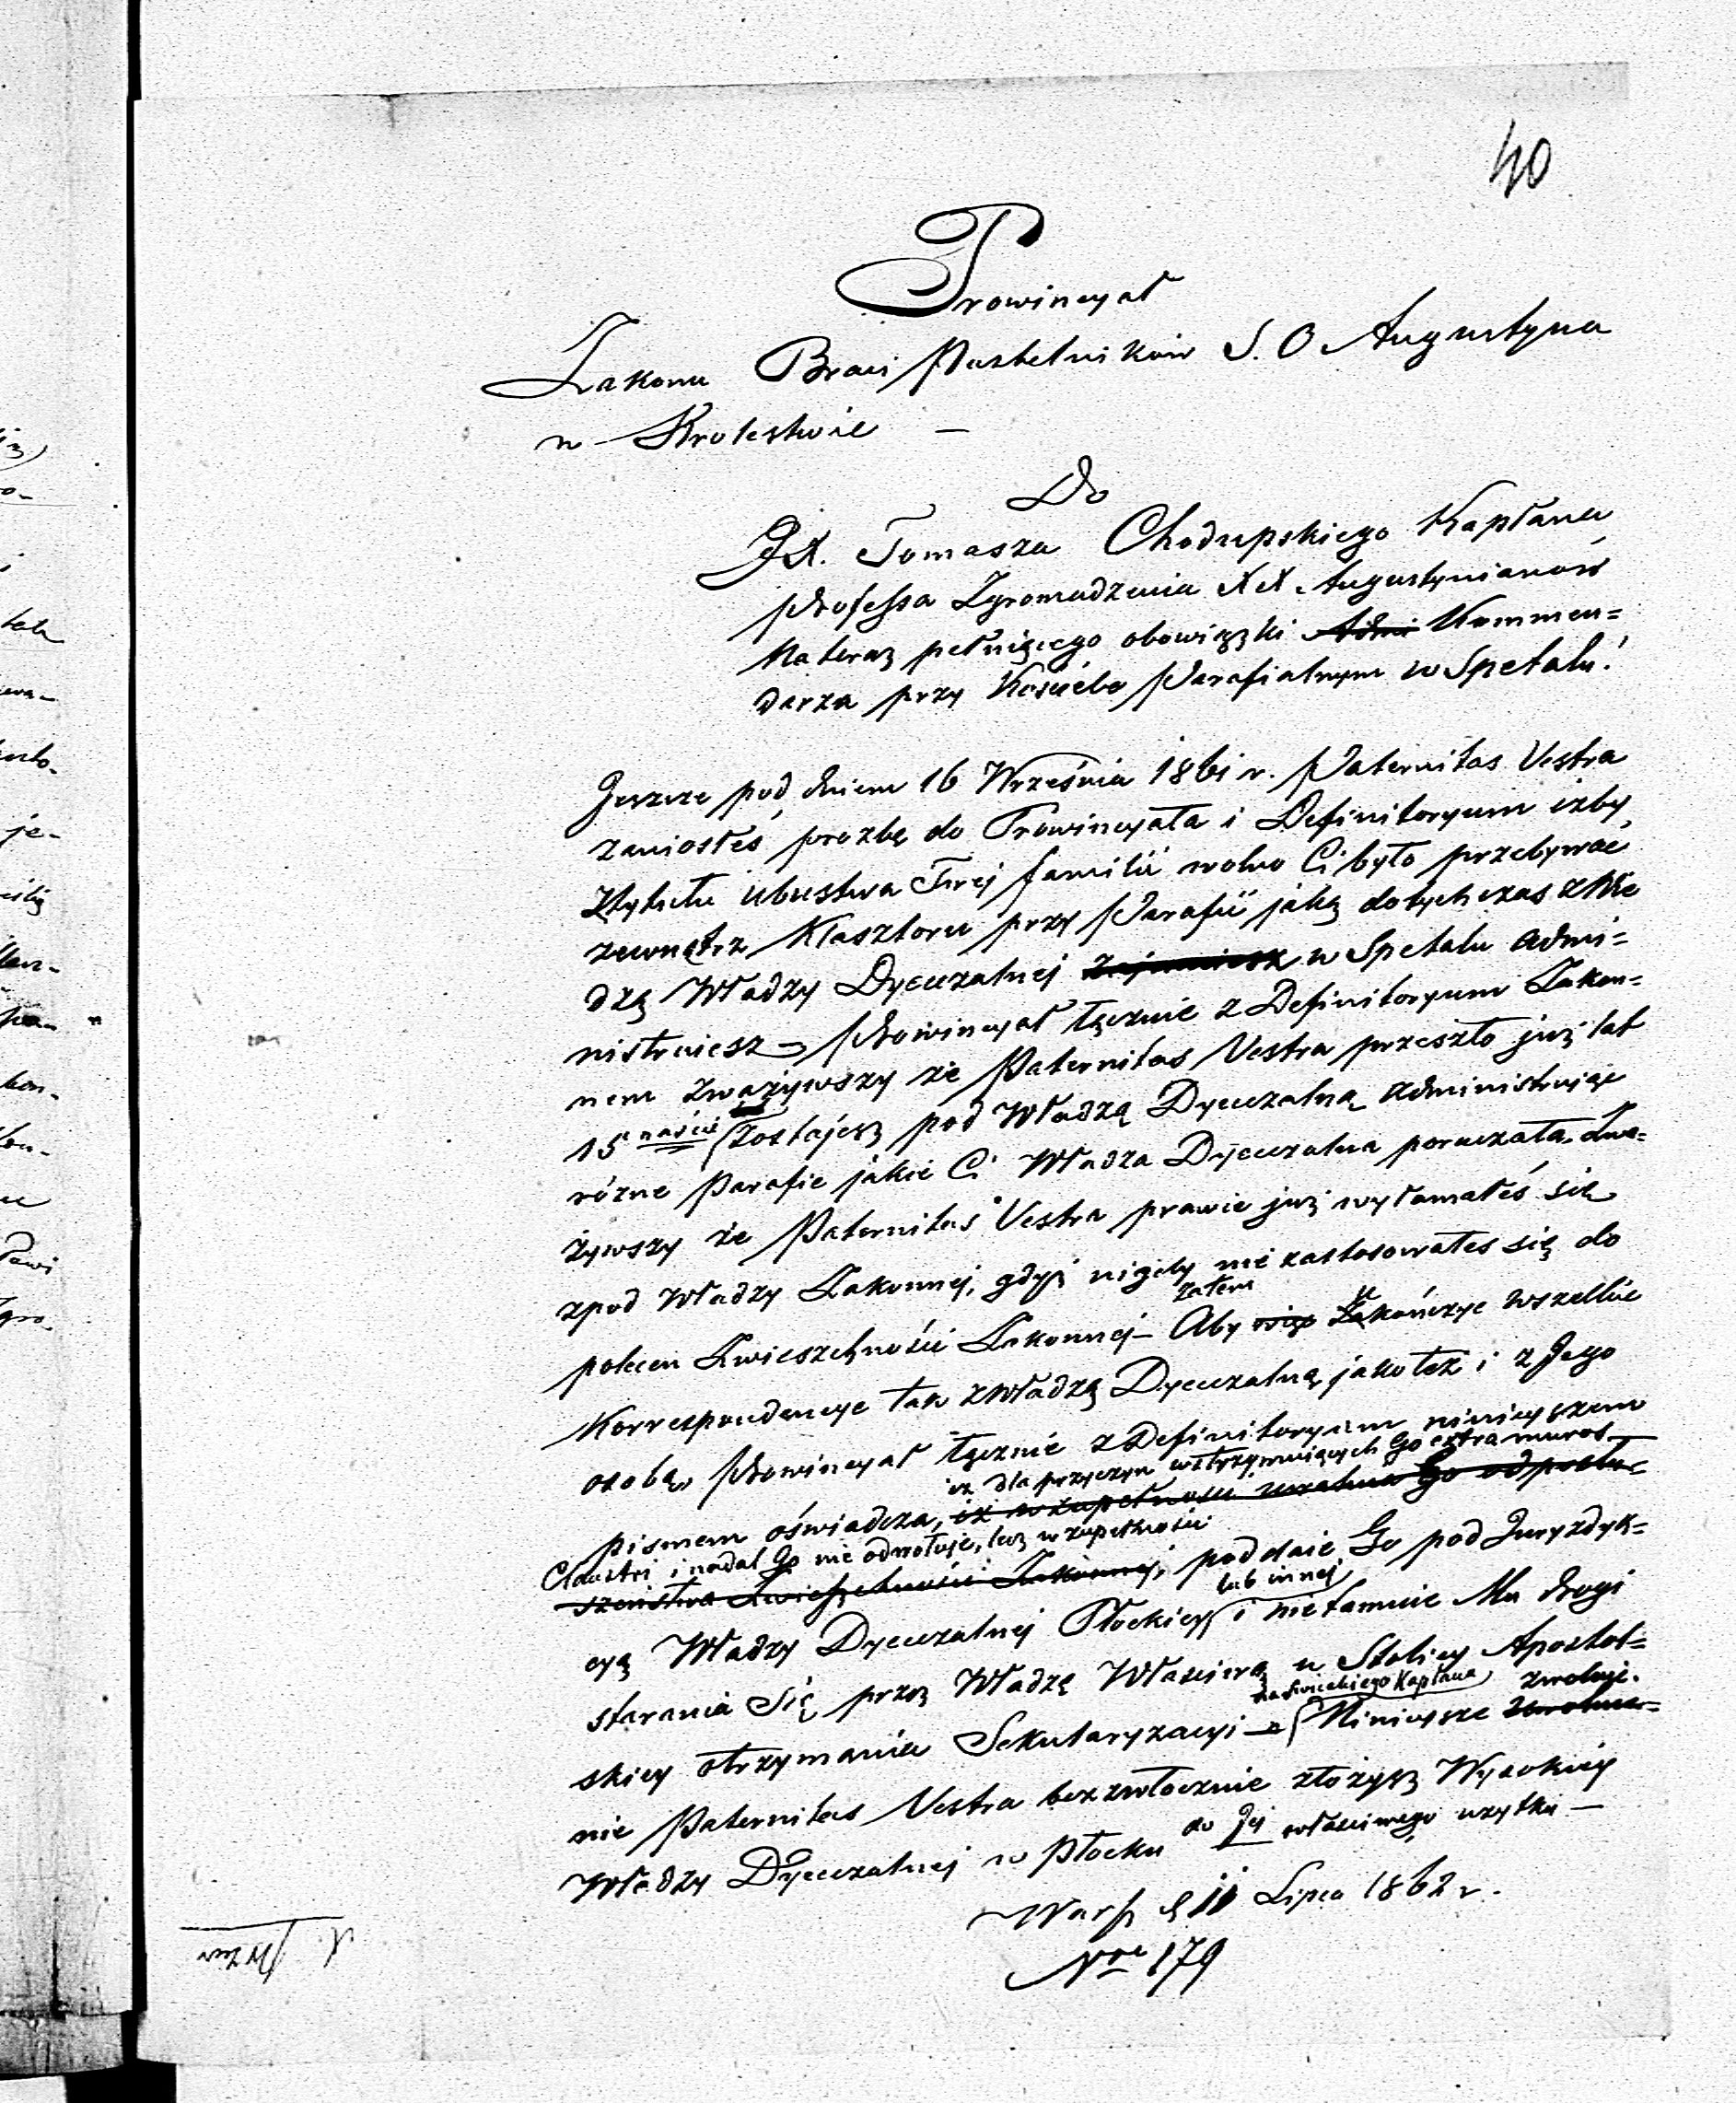 40
Prowincyał
Zakonu Braci Pustelników S. O Augustyna
w Krolestwie —
Do
JX. Tomasza Chodupskiego Kapłana
Professa Zgromadzenia XX. Augustynianów
Na teraz pełniącego obowiązki Admi Kommen=
darza przy Kościele Parafialnym w Spetalu!
Jeszcze pod dniem 16 Września 1861 r. Paternitas Vestra
zaniosłeś prozbę do Prowincyała i Definitoryum izby
z tytułu ubustwa Twej familii wolno Ci było przebywać
zewnątrz Klasztoru przy Parafii jaką dotychczas z Wie
dzą Władzy Dyecezalnej zajmujesz w Spetalu admi=
nistrujesz — Prowincyał łącznie z Definitoryum Zakon=
nem zważywszy że Paternitas Vestra przeszło już lat
15 naście zostajesz pod Władzą Dyecezalną administrując
rózne Parafie jakie Ci Władza Dyecezalna poruczała. Zwa=
żywszy że Paternitas Vestra prawie już wyłamałeś się
zpod Władzy Zakonnej, gdyż nigdy nie zastosowałes się do
zatem
polecen Zwieszchności Zakonnej — Aby więc zakończyc wszelkie
Korrespondencye tak z Władzą Dyecezalną jako też i z Jego
osobą, Prowincyał łącznie z Definitoryum niniejszem
iz dla przyczyn wstrzymujących Go extra muros
pismem oświadcza, iż w zupełnosci uwalnia Go od posłu=
Claustri i nadal Go nie odwołuje, lecz w zupełnosci
szeństwa Zwieszchności Zakonnej, poddaie Go pod Juryzdyk=
lub innej
cyą Władzy Dyecezalnej Płockiey i nie tamuie Mu drogi
starania Się przez Władzę Właściwą u Stolicy Apostol=
na swieckiego Kapłana zwolnie.
skiey otrzymania Sekularyzacyi — Niniejsze uwolnie=
nie Paternitas Vestra bezzwłocznie złożysz Wysokiey
Władzy Dyecezalnej w Płocku do Jej własciwego uzytku —
Warsz d 11 Lipca 1862 r.
Nro 179